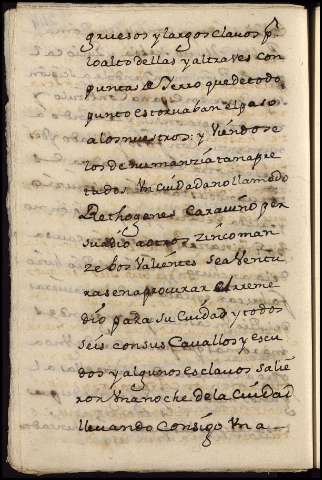 gruesos y largos clavos pr
lo alto dellas y al traves con
puntas de Ierro que de todo
punto estorvaban el paso
a los nuestros: y Viendose
los de numanzia tan apre
tados Vn ciudadano llamado
Rethogenes Caravino per
suadio a otros zinco man
zebos Valientes se aventu
rasen a procurar el reme
dio para su Ciudad y todos
seis con sus Cavallos y escu
dos y algunos esclavos salie
ron Vna noche de la Ciudad
llevando Consigo Vna